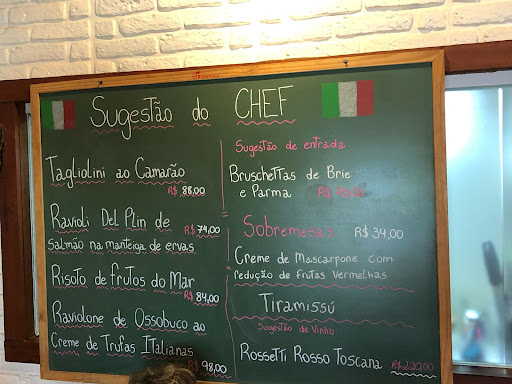 Sugestão do CHEF
Tagliolini ao Camarão
R$ 88,00
Ravioli Del Plin de
R$ 74,00
Salmão na manteiga de ervas
Risoto de frutos do Mar
R$ 84,00
Raviolone de Ossobuco ao
Creme de Trufas Italianas
R$ 98,00
Sugestão de entrada
Bruschettas de Brie
e Parma
Sobremesas R$ 34,00
Creme de Mascarpone com
redução de frutas vermelhas
Tiramissú
Sugestão de Vinho
Rossetti Rosso Toscana R$ 220,00